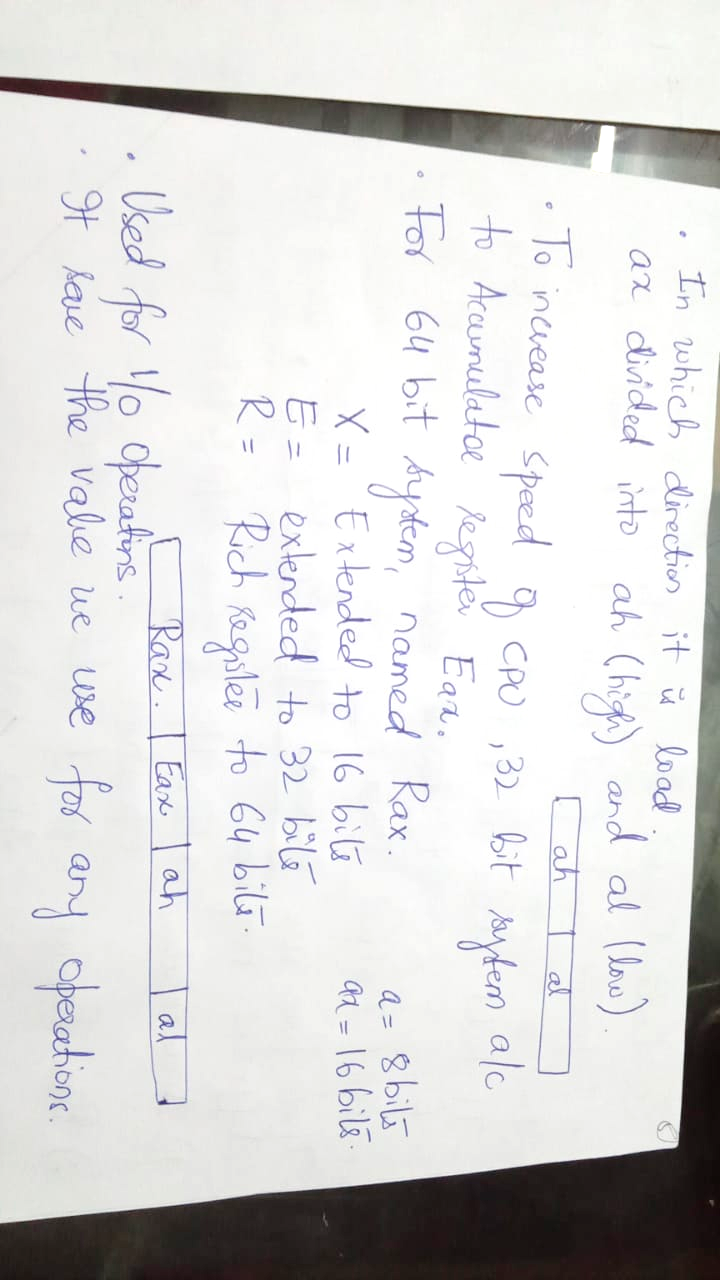 • In which direction it is load.
ax divided into ah (high) and al (low).
ah | al
• To increase speed of CPU, 32 bit system a/c
to Accumulator register Eax.
• For 64 bit system, named Rax.
X = Extended to 16 bits
E = extended to 32 bits
R = Rich register to 64 bits.
a = 8 bits
ax = 16 bits.
Rax. | Eax | ah | al
• Used for I/O operations.
• It save the value we use for any operations.